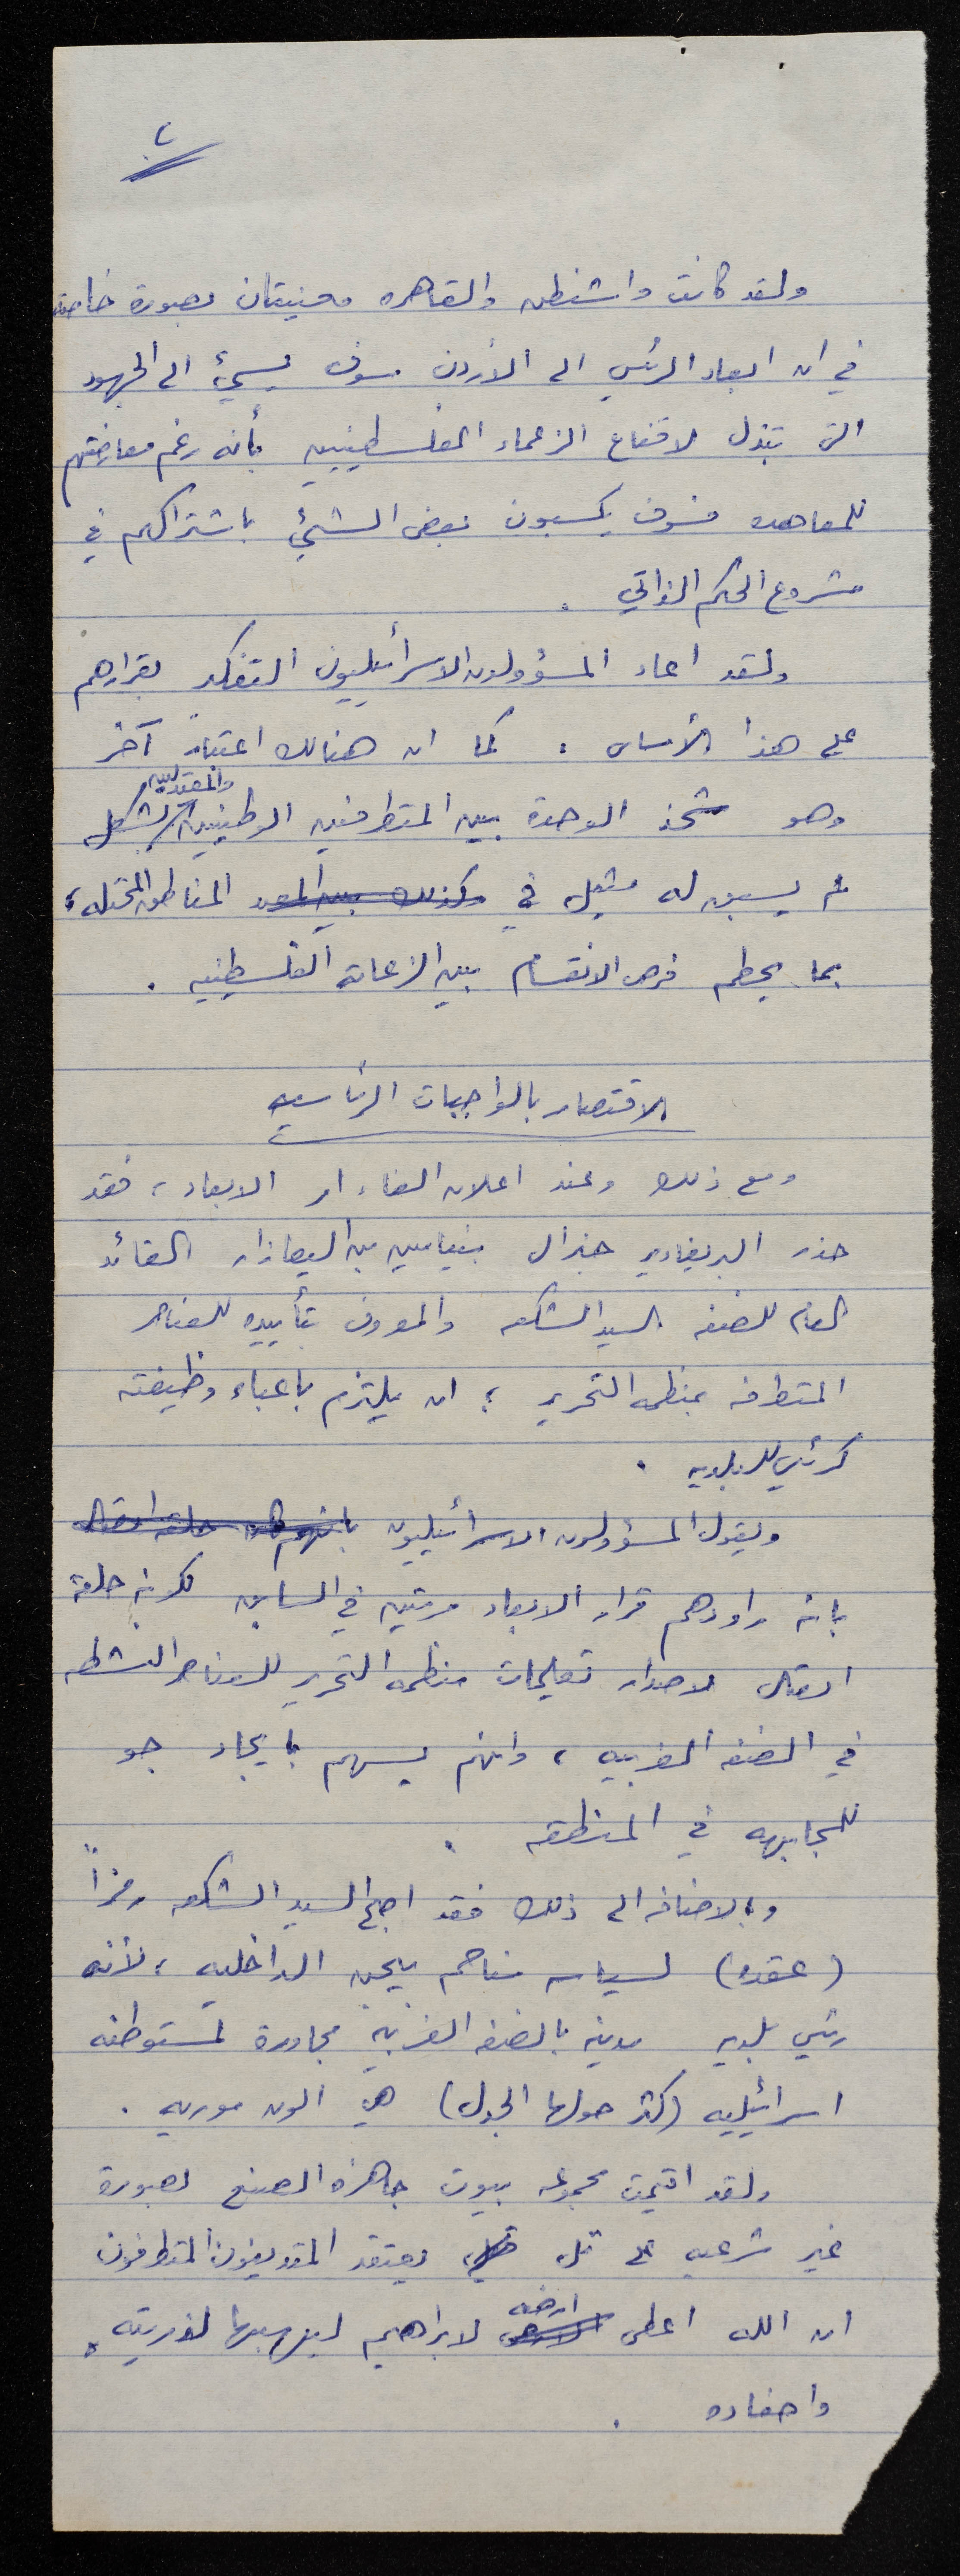 ٢
ولقد كانت واشنطن والقاهره معنيتان بصورة خاصه
في ان ابعاد الرئيس الى الأردن سوف يسيئ الى الجهود
التي تبذل لاقناع الزعماء الفلسطينيين بأنه رغم معارضتهم
للمعاهده فسوف يكسبون بعض الشيئ باشتراكهم في
مشروع الحكم الذاتي .
ولقد اعاد المسؤولون الاسرائيليون التفكير بقرارهم
على هذا الأساس . كما ان هنالك اعتبار آخر
والمعتدلين
وهو شحذ الوحدة بين المتطرفين الوطنيين بشكل
لم يسبق له مثيل في وكذلك بين المعتد المناطق المحتله ،
بما يحطم فرص الانقسام بين الزعامة الفلسطينيه .
الاقتصار بالواجبات الرئاسيه
ومع ذلك وعند اعلان الغاء امر الابعاد ، فقد
حذر البريغادير جنرال بنيامين بن اليعازار القائد
العام للضفه السيد الشكعه والمعروف بتأييده للعناصر
المتطرفه بمنظمه التحرير ، ان يلتزم باعباء وظيفته
كرئيس للبلديه .
ويقول المسؤولون الاسرائيليون بانهم حلقة اتصال
بانه راودهم قرار الابعاد مرتين في السابق لكونه حلقة
اتصال لاصدار تعليمات منظمه التحرير للعناصر النشطه
في الضفه الغربيه ، وانهم يسهم بايجاد جو
للمجابهه في المنطقه .
وبالاضافه الى ذلك فقد اصبح السيد الشكعه رمزاً
(عقده) لسياسه مناحم بيجن الداخليه ، لأنه
رئيس بلديه مدينه بالضفه الغربيه مجاورة لمستوطنه
اسرائيليه (كثر حولها الجدل) هي الون موريه .
ولقد اقيمت مجموعه بيوت جاهزه الصنع بصورة
غير شرعيه على تل يعتقد المتدينون المتطرفون
ارضه
ان الله اعطى الارض لابراهيم ليهبها لذريته
واحفاده .